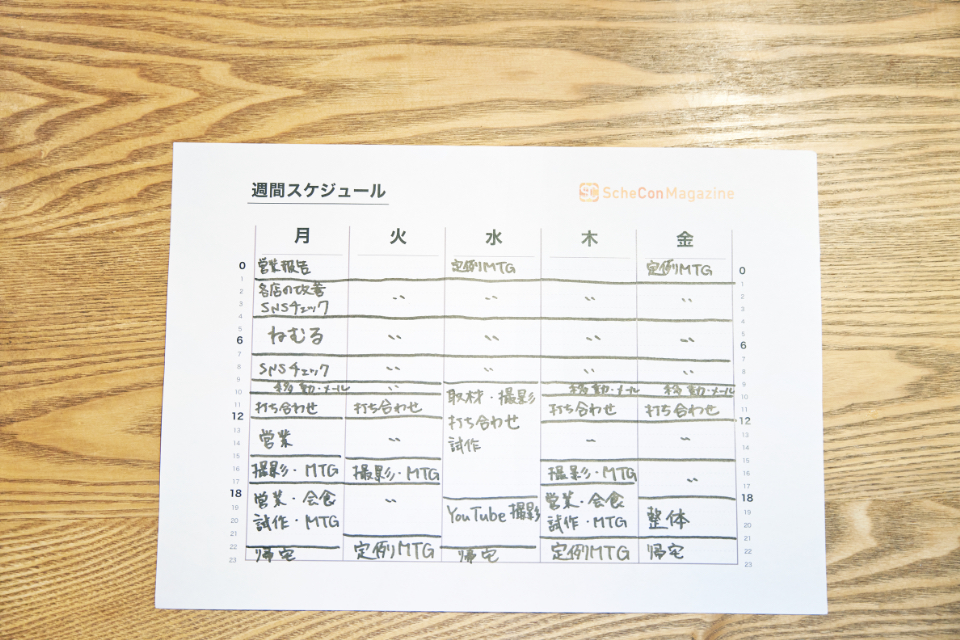 週間スケジュール
SC ScheCon Magazine
月 火 水 木 金
0 営業報告 定例MTG 定例MTG 0
1 1
2 各店の改善 〃 〃 〃 〃 2
3 SNSチェック 3
4 4
5 5
6 ねむる 〃 〃 〃 〃 6
7 7
8 SNSチェック 〃 〃 〃 〃 8
9 移動・メール 〃 移動・メール 移動・メール 9
10 取材・撮影 10
11 打ち合わせ 打ち合わせ 打ち合わせ 打ち合わせ 11
12 打ち合わせ 12
13 営業 〃 試作 〃 〃 13
14 14
15 15
16 撮影・MTG 撮影・MTG 撮影・MTG 〃 16
17 17
18 営業・会食 〃 営業・会食 18
19 YouTube撮影 19
20 試作・MTG 試作・MTG 整体 20
21 21
22 帰宅 定例MTG 帰宅 定例MTG 帰宅 22
23 23